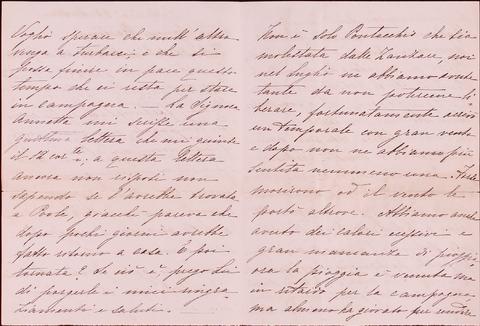 Voglio sperare che null'altro
venga a turbarci, e che si
possa finire in pace questo
tempo che ci resta per stare
in campagna. — La Signora
Annetta mi scrisse una
lettera che mi giunse
il 14 corte, a questa lettera
ancora non risposi non
sapendo se l'avrebbe trovata
a giacchè pareva che
dopo pochi giorni avrebbe
fatto ritorno a casa. È poi
tornata? Se ciò è prego Lei
di porgerle i miei ringra-
ziamenti e saluti. —
Non è solo Pontecchio che sia
molestata dalle Zanzare, noi
nel luglio ne abbiamo avute
tante da non potercene li-
berare, fortunatamente arrivò
un temporale con gran vento
e dopo non ne abbiamo più
sentita nemmeno una. Forse
morirono od il vento le
portò altrove. Abbiamo anche
avuto dei calori eccessivi e
gran mancanza di pioggia
ora la pioggia è venuta ma
in ritardo per la campagna
ma almeno ha giovato per